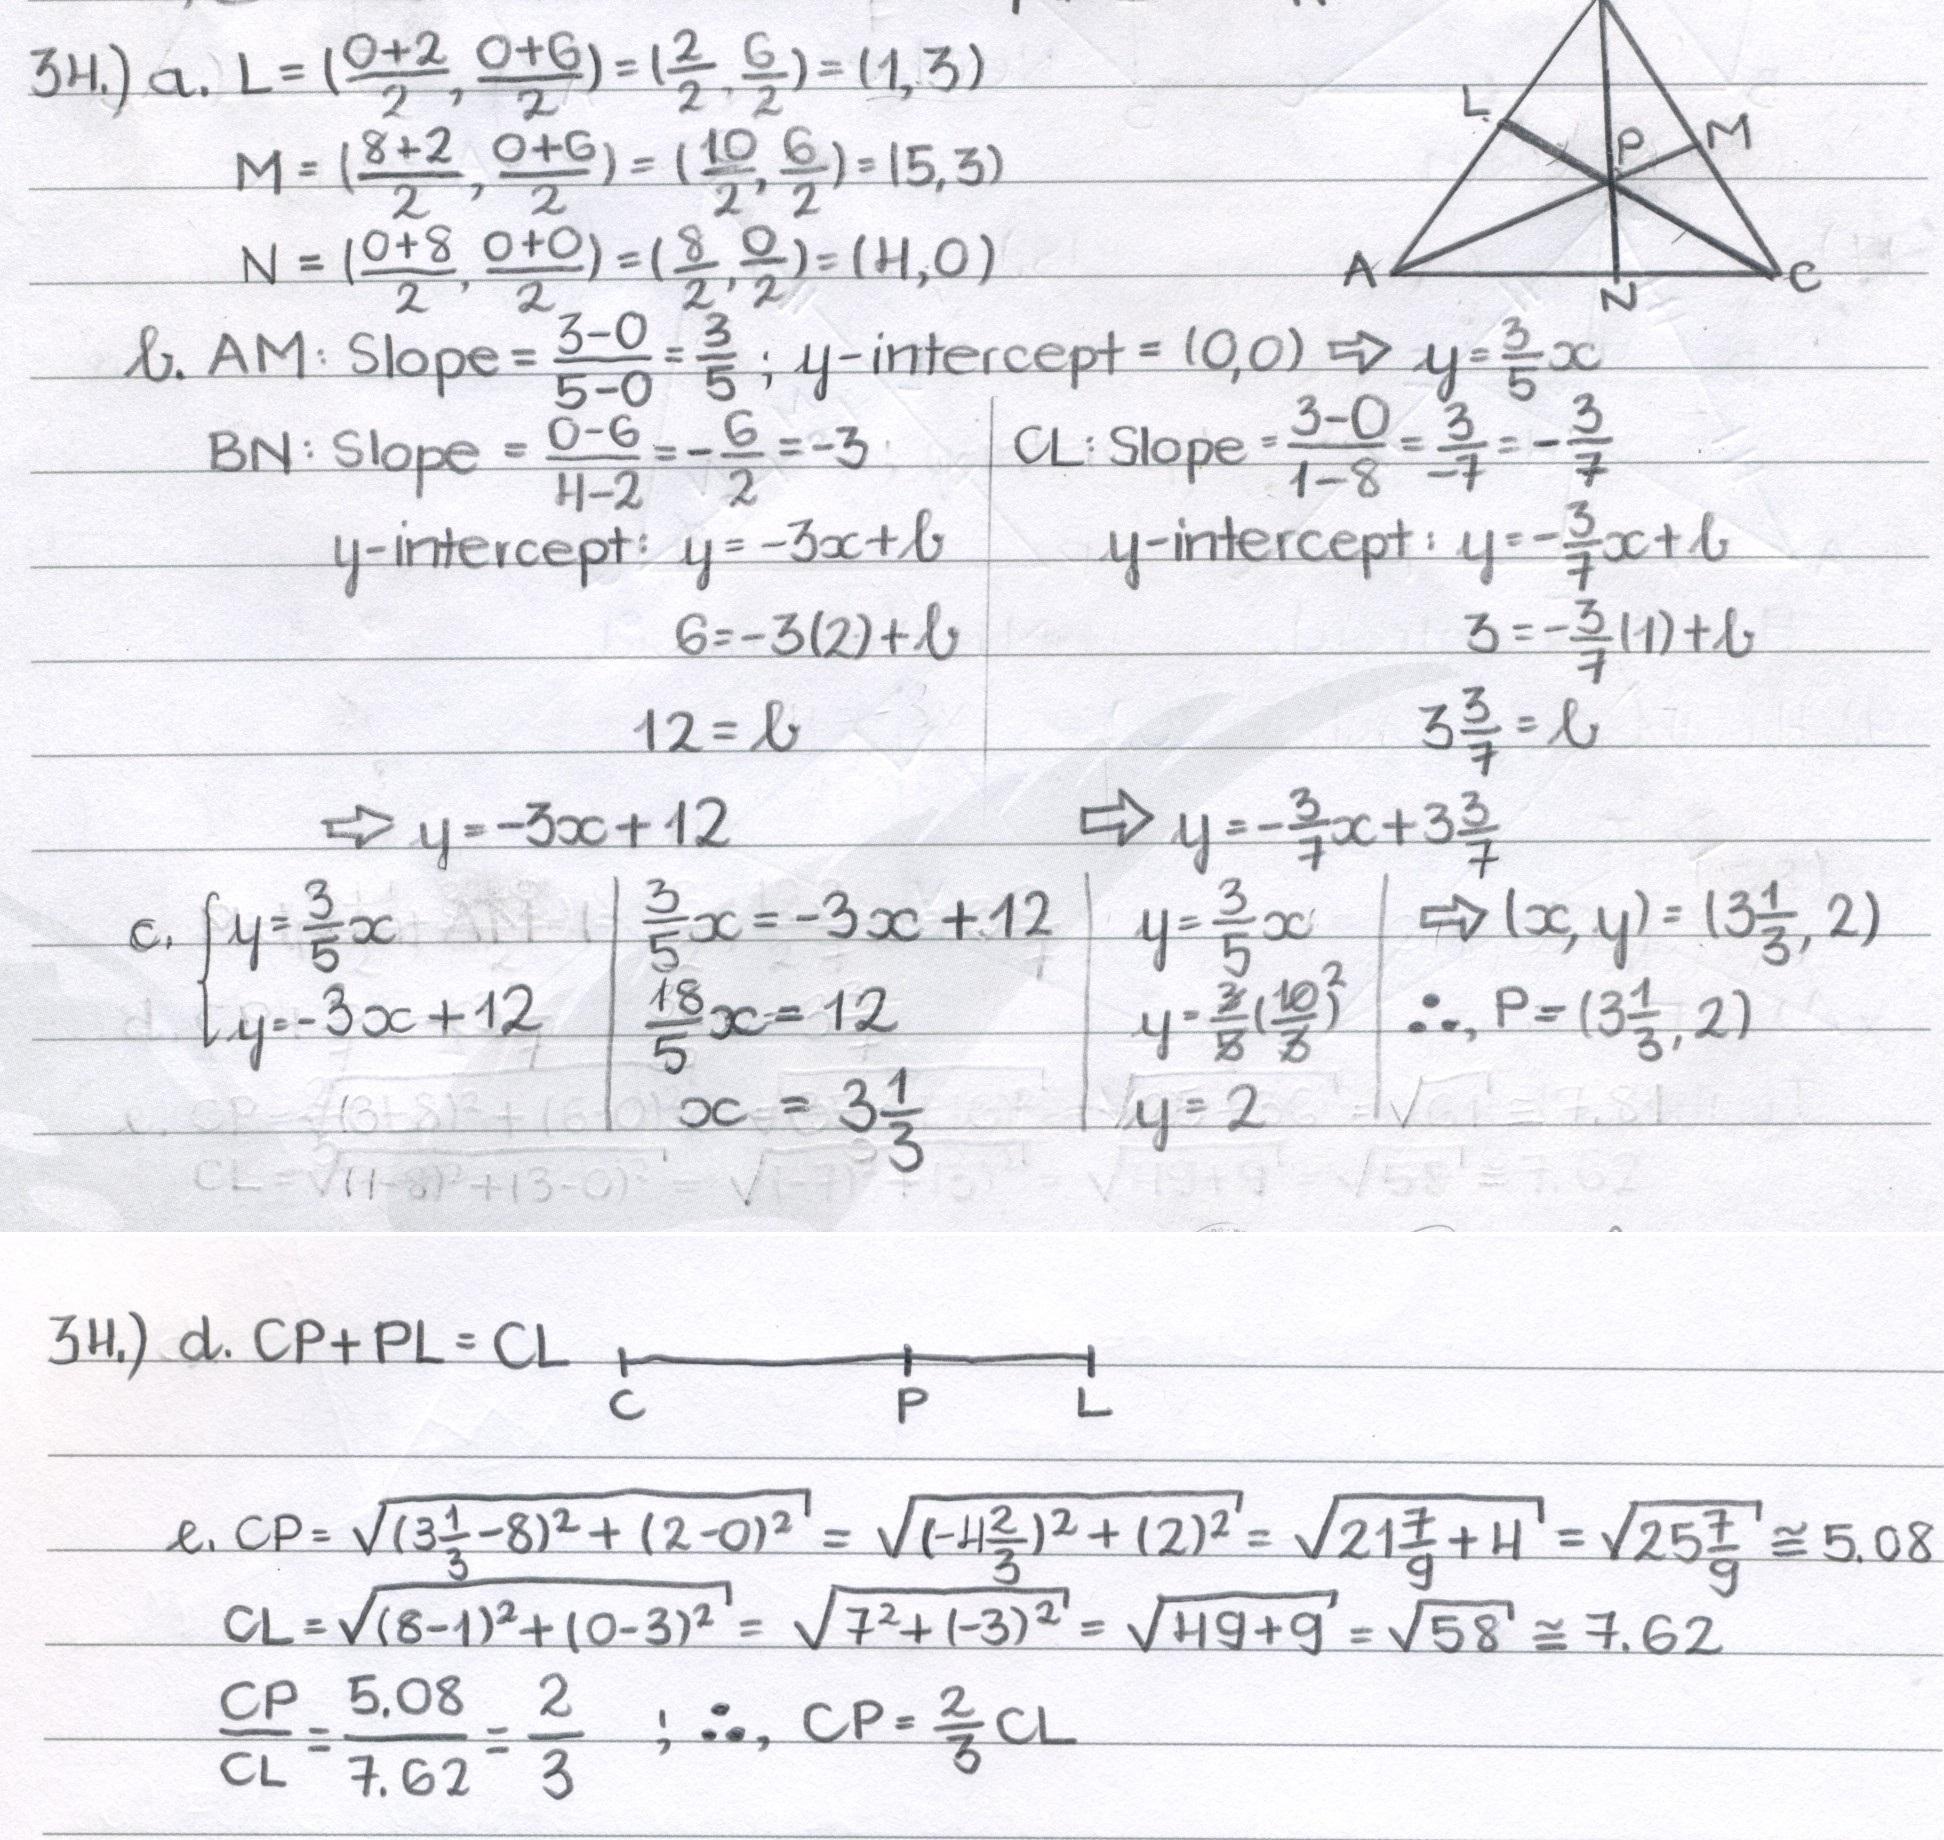 34.) a. L = (0+2/2, 0+6/2) = (2/2, 6/2) = (1, 3)
M = (8+2/2, 0+6/2) = (10/2, 6/2) = (5, 3)
N = (0+8/2, 0+0/2) = (8/2, 0/2) = (4, 0)
L P M
A N C
b. AM: Slope = 3-0/5-0 = 3/5 ; y-intercept = (0,0) ⇨ y = 3/5 x
BN: Slope = 0-6/4-2 = -6/2 = -3
y-intercept: y = -3x + b
6 = -3(2) + b
12 = b
⇨ y = -3x + 12
CL: Slope = 3-0/1-8 = 3/-7 = -3/7
y-intercept: y = -3/7 x + b
3 = -3/7 (1) + b
3 3/7 = b
⇨ y = -3/7 x + 3 3/7
c. { y = 3/5 x
y = -3x + 12
3/5 x = -3x + 12
18/5 x = 12
x = 3 1/3
y = 3/5 x
y = 3/5 (10/3) 2
y = 2
⇨ (x, y) = (3 1/3, 2)
∴, P = (3 1/3, 2)
34.) d. CP + PL = CL
C P L
e. CP = √(3 1/3 - 8)² + (2-0)² = √(-4 2/3)² + (2)² = √21 7/9 + 4 = √25 7/9 ≅ 5.08
CL = √(8-1)² + (0-3)² = √7² + (-3)² = √49+9 = √58 ≅ 7.62
CP/CL = 5.08/7.62 = 2/3 ; ∴, CP = 2/3 CL